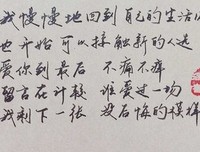 我慢慢地回到 自己的生活
也开始 可以接触新的人选
愛你到最后 不痛不痒
留言在计较 谁爱过一场
我剩下一张 没后悔的模样